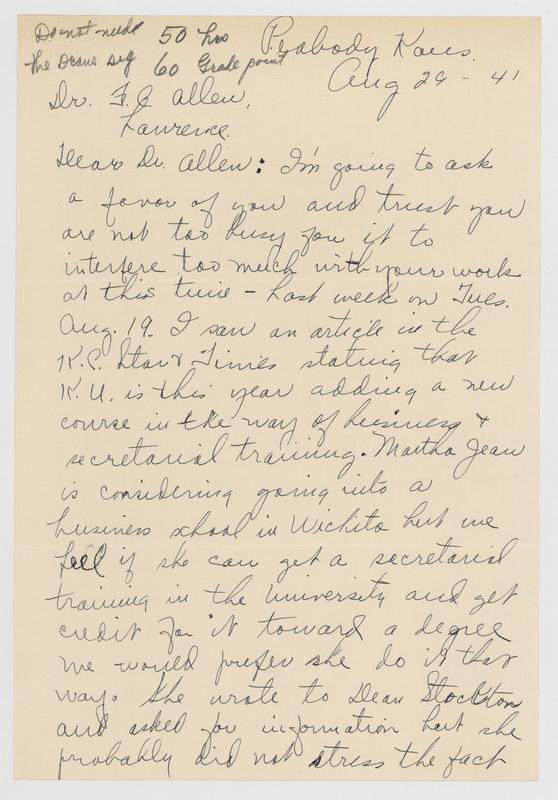 Do not need 50 hrs
the Deans sig 60 Grade point
Peabody Kans.
Aug 29 - 41
Dr. F. C. Allen,
Lawrence.
Dear Dr. Allen: I'm going to ask
a favor of you and trust you
are not too busy for it to
interfere too much with your work
at this time - Last week on Tues.
Aug. 19. I saw an article in the
K.C. Star & Times stating that
K.U. is this year adding a new
course in the way of business &
secretarial training. Martha Jean
is considering going into a
business school in Wichita but we
feel if she can get a secretarial
training in the University and get
credit for it toward a degree
we would prefer she do it that
way. She wrote to Dean Stockton
and asked for information but she
probably did not stress the fact